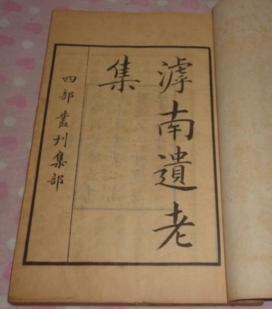 滹南遺老
集
四部叢刊集部